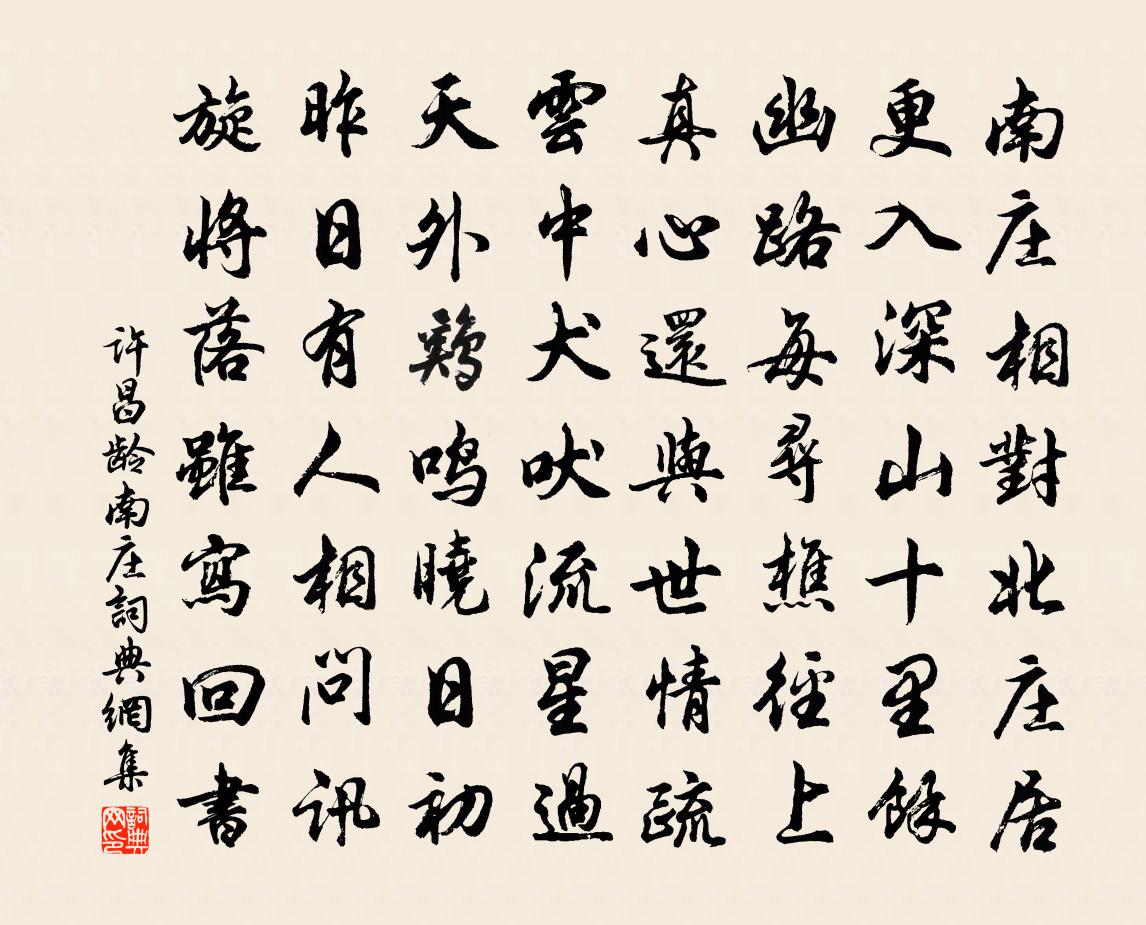 南庄相對北庄居
更入深山十里餘
幽路每尋樵徑上
真心還與世情疏
雲中犬吠流星過
天外鷄鳴曉日初
昨日有人相問訊
旋將落雖寫回書
许昌龄南庄詞典網集
詞典网印